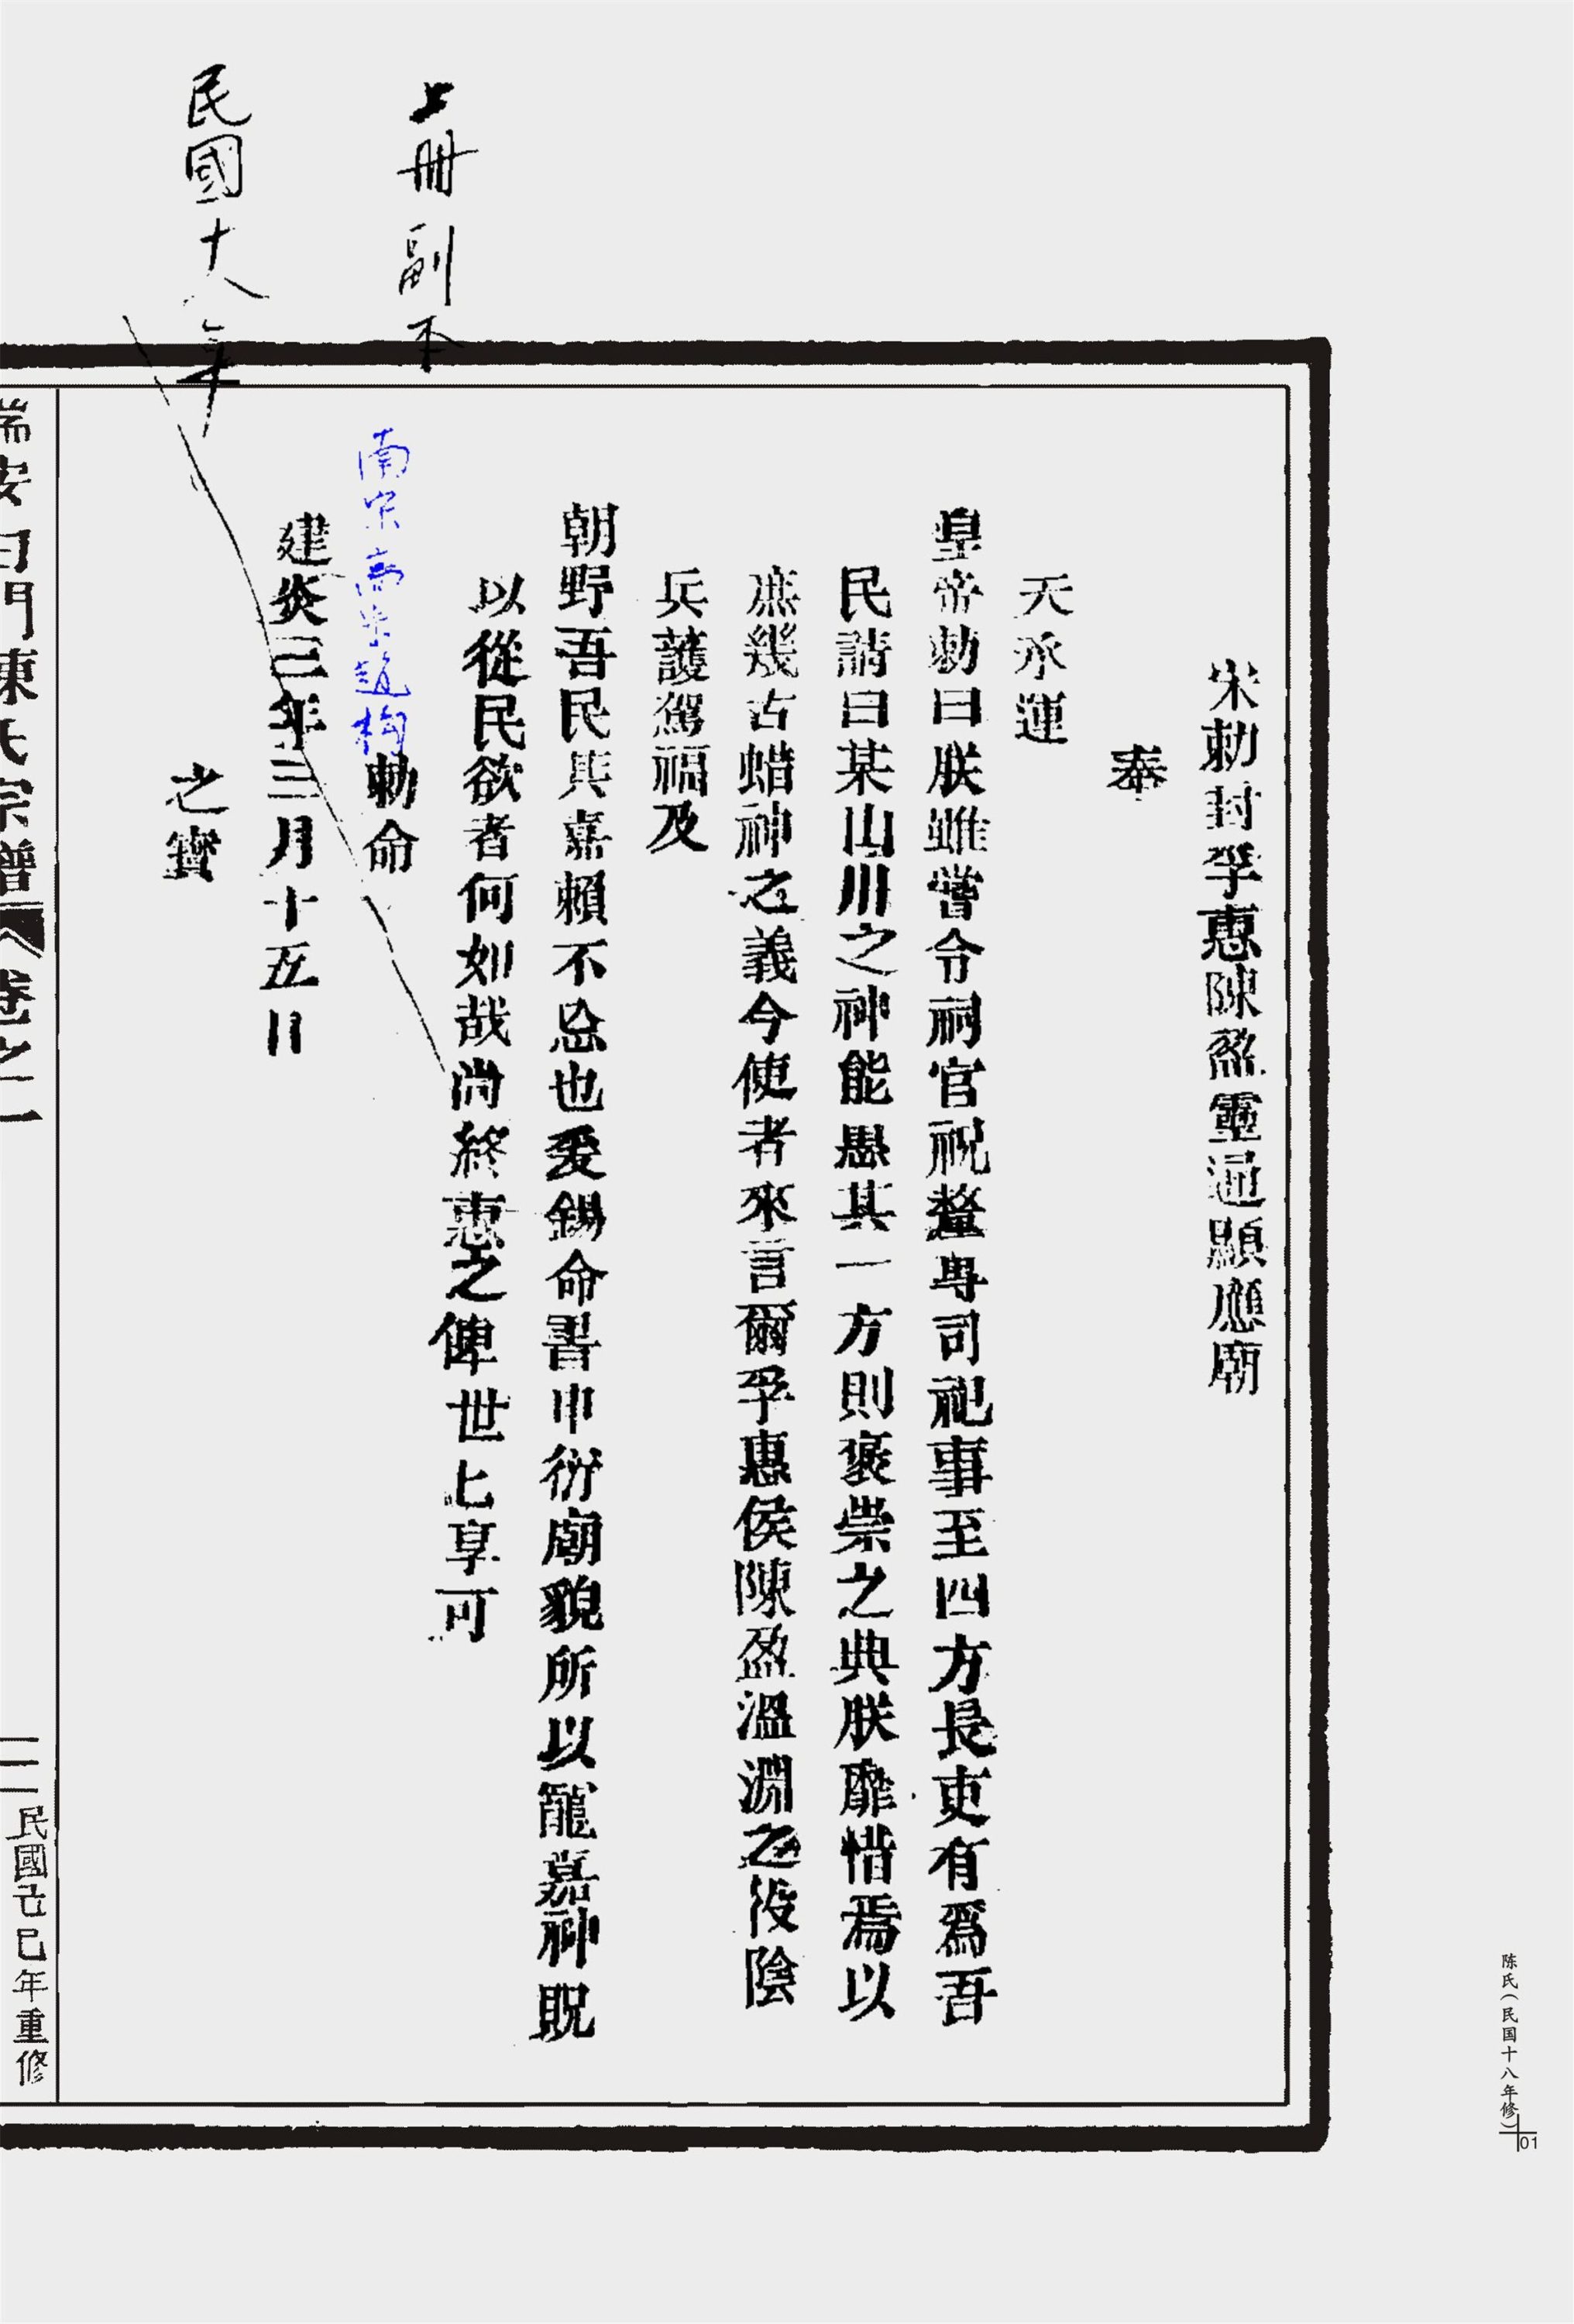 上冊副本
民國十八年
宋勅封孚惠陳盈靈通顯應廟
奉
天承運
皇帝勅曰朕雖嘗令祠官祝釐專司祀事至四方長吏有爲吾
民請曰某山川之神能惠其一方則褒崇之典朕靡惜焉以
庶幾古蜡神之義今使者來言爾孚惠侯陳盈溫淵之役陰
兵護駕福及
朝野吾民其嘉賴不忘也爰錫命書申衍廟貌所以寵嘉神貺
以從民欲者何如哉尚終惠之俾世匕享可
南宋高宗趙构
勅命
建炎三年三月十五日
之寶
瑞安白門陳氏宗譜 卷之一
二 民國己巳年重修
陈氏(民国十八年修)
01